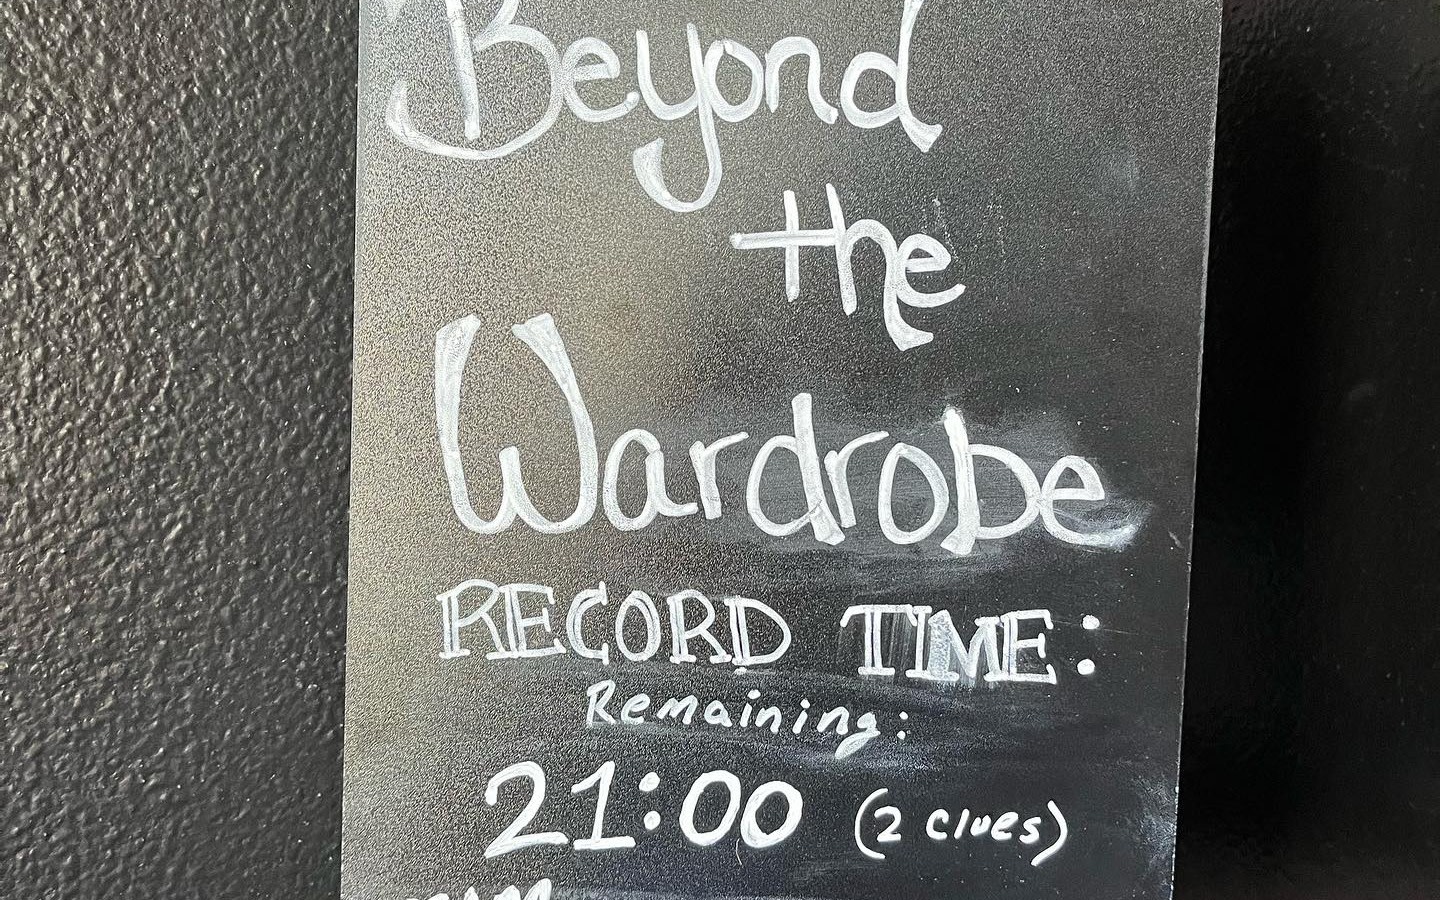 Beyond
the
Wardrobe
RECORD TIME:
Remaining:
21:00 (2 clues)